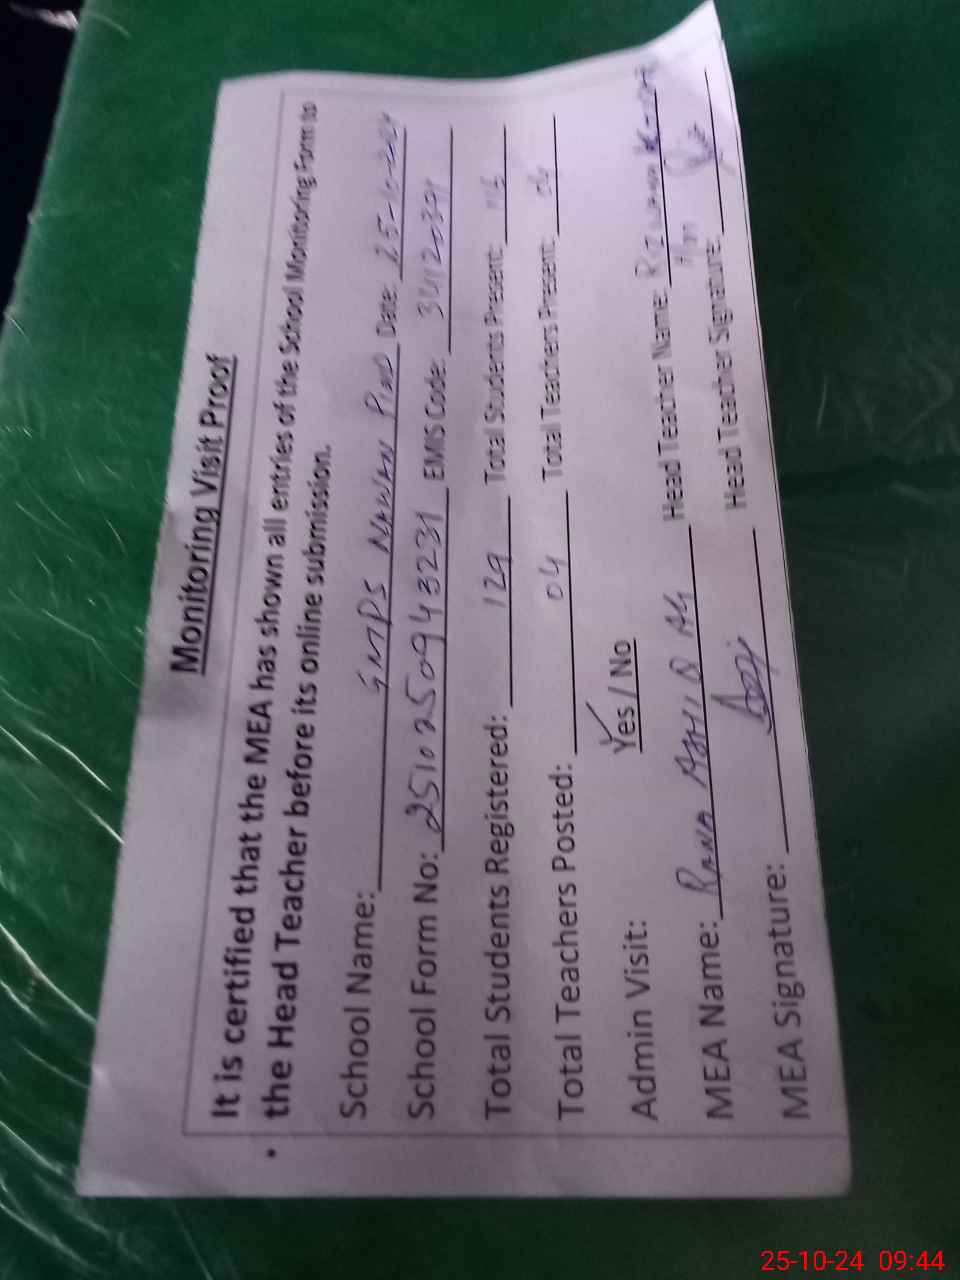 Monitoring Visit Proof
It is certified that the MEA has shown all entries of the School Monitoring Form to
• the Head Teacher before its online submission.
School Name: GMPS NAWAN PIND Date: 25-10-2024
School Form No: 2510250943231 EMIS Code:
Total Students Registered: 129 Total Students Present:
Total Teachers Posted: 04 Total Teachers Present: 04
Admin Visit: Yes / No
MEA Name: RANA Head Teacher Name:
MEA Signature: Head Teacher Signature:
25-10-24 09:44